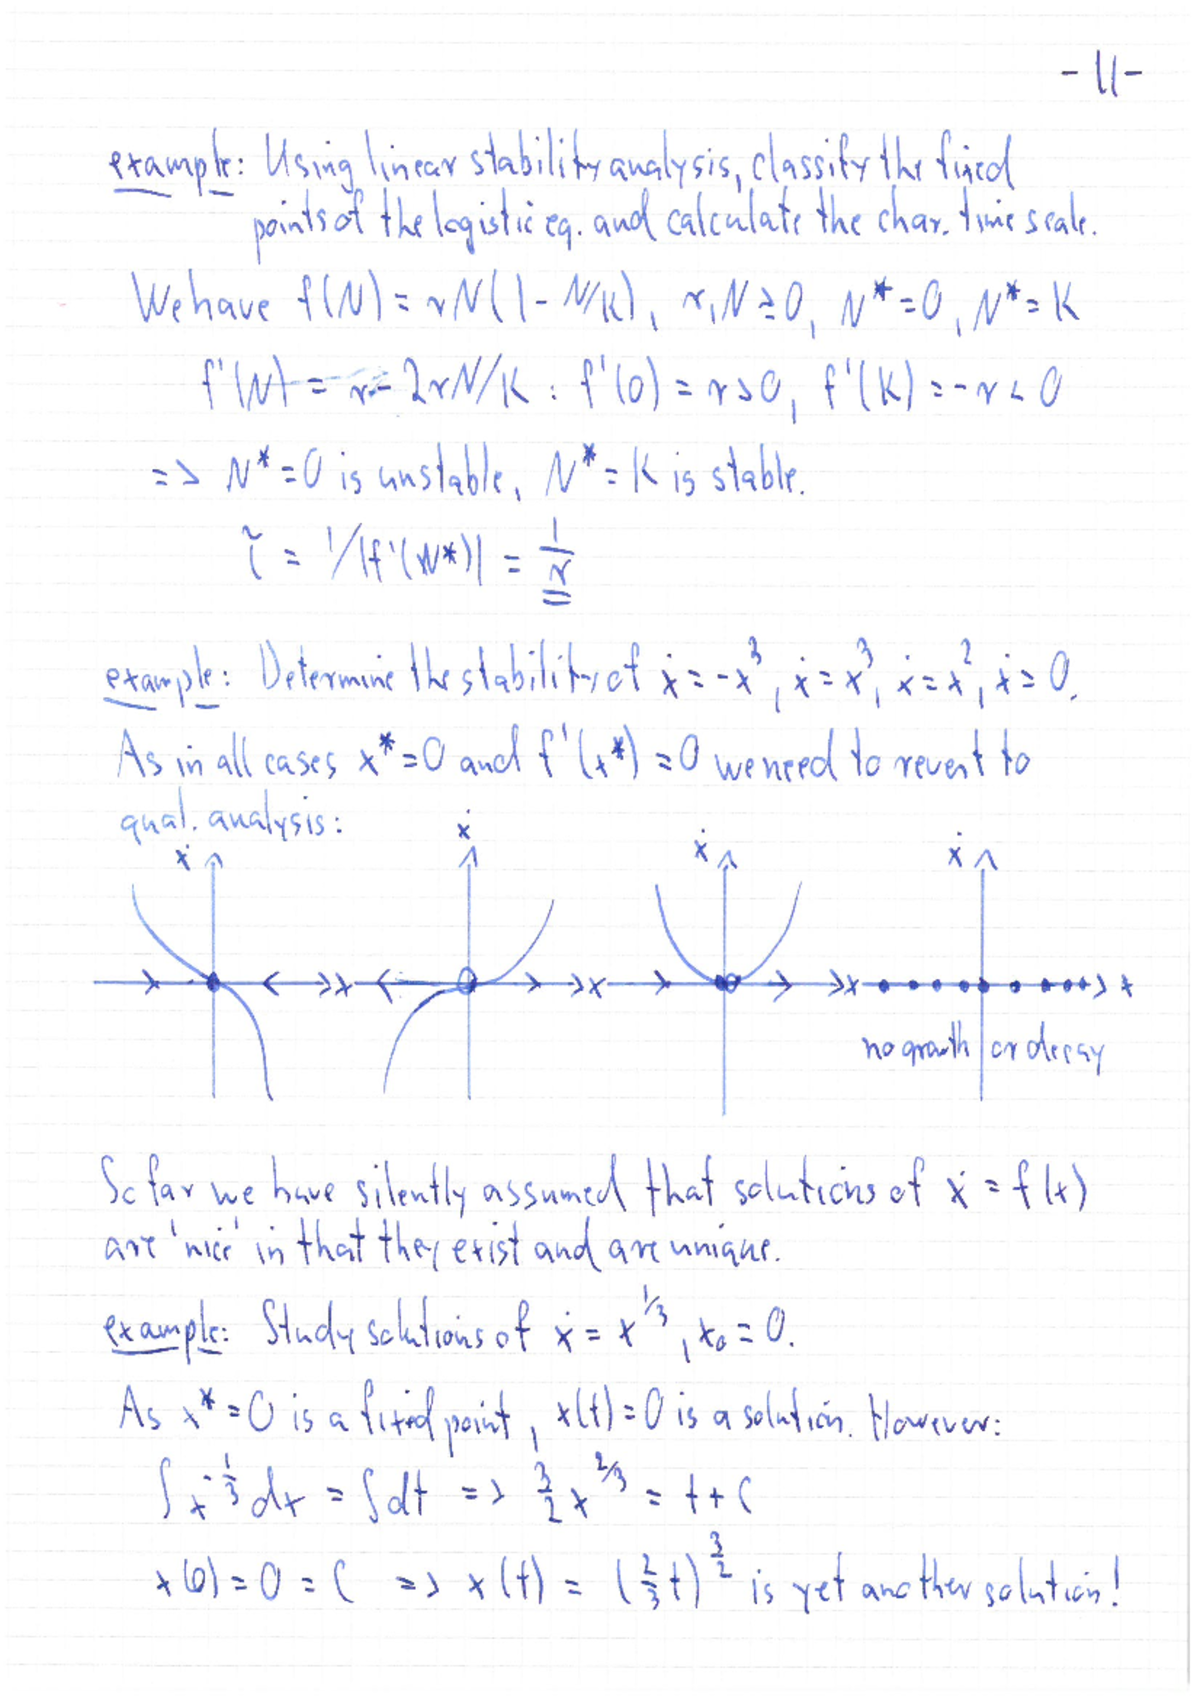 - 11 -
example: Using linear stability analysis, classify the fixed
points of the logistic eq. and calculate the char. time scale.
We have f(N) = rN(1 - N/K), r,N ≥ 0, N* = 0, N* = K
f'(N) = r - 2rN/K : f'(0) = r > 0, f'(K) = -r < 0
=> N* = 0 is unstable, N* = K is stable.
τ̃ = 1/|f'(N*)| = 1/r
example: Determine the stability of ẋ = -x³, ẋ = x³, ẋ = x², ẋ = 0.
As in all cases x* = 0 and f'(x*) = 0 we need to revert to
qual. analysis:
ẋ ẋ ẋ ẋ
x x x x
no growth or decay
So far we have silently assumed that solutions of ẋ = f(x)
are 'nice' in that they exist and are unique.
example: Study solutions of ẋ = x^{1/3}, x₀ = 0.
As x* = 0 is a fixed point, x(t) = 0 is a solution. However:
∫ x^{-1/3} dx = ∫ dt => 3/2 x^{2/3} = t + C
x(0) = 0 = C => x(t) = (2/3 t)^{3/2} is yet another solution!